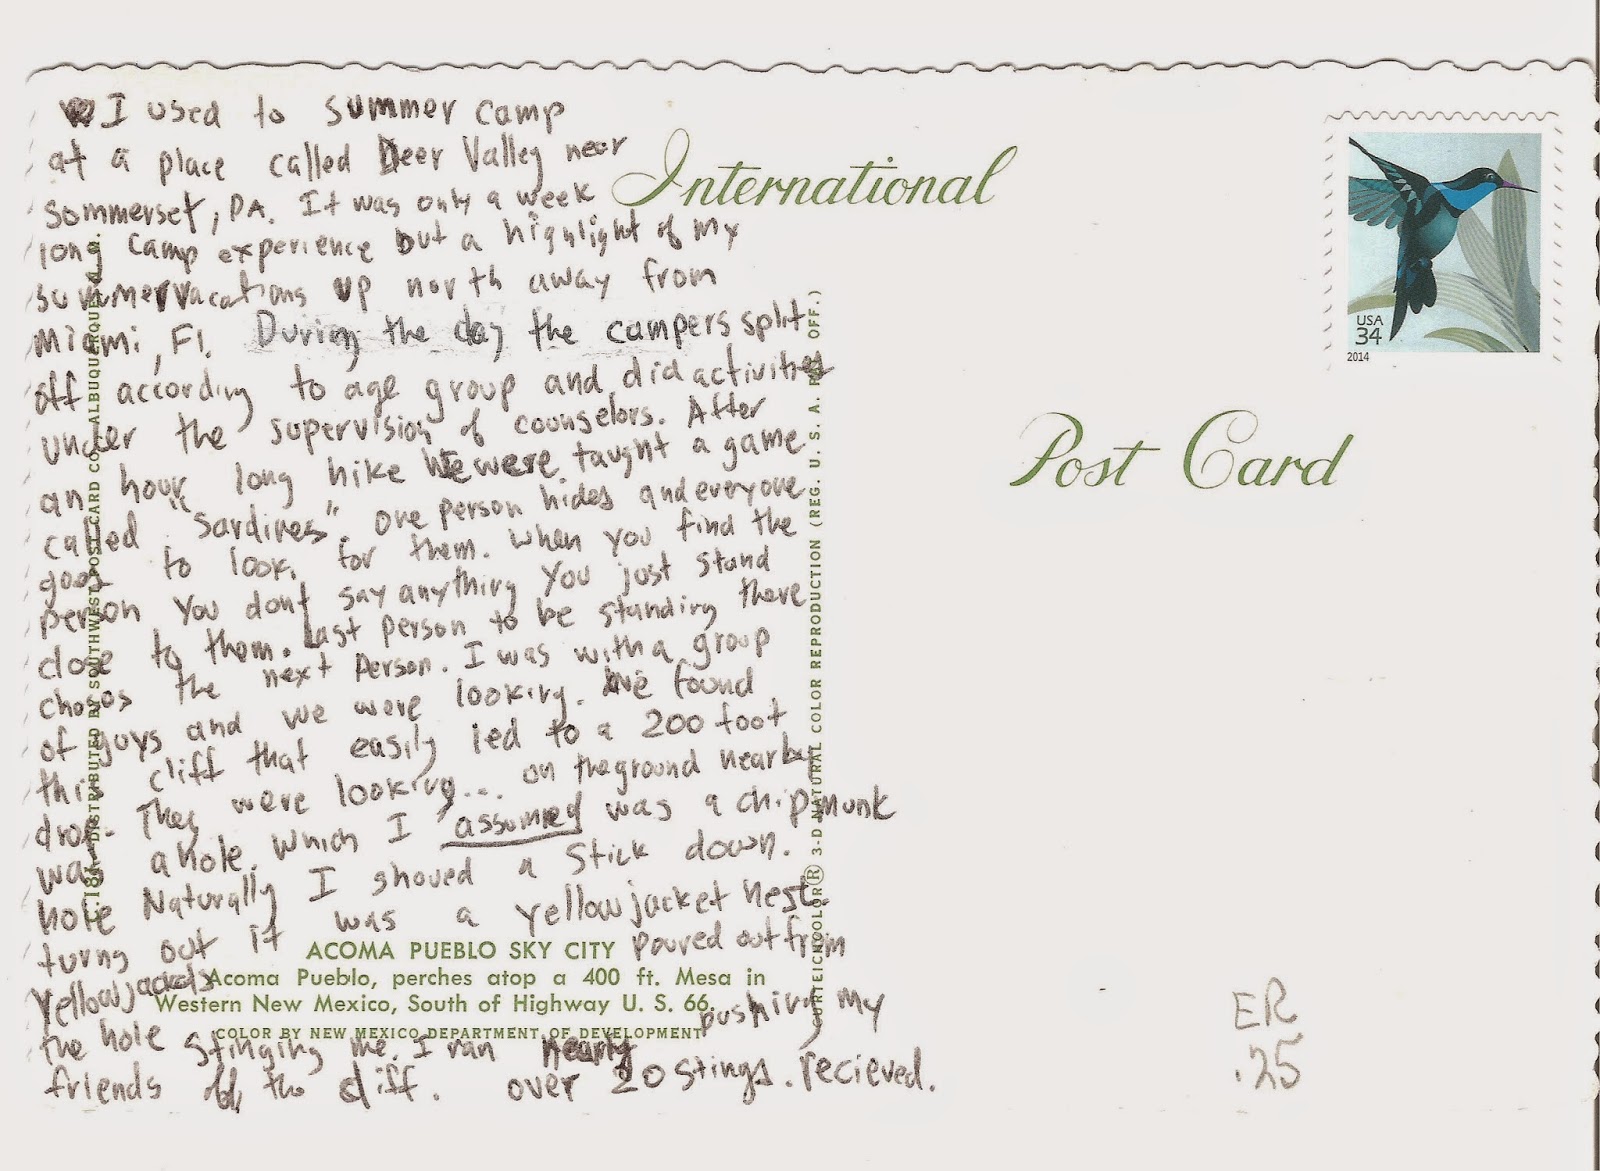 I used to summer camp
at a place called Deer Valley near
Sommerset, PA. It was only a week
long camp experience but a highlight of my
summer vacations up north away from
Miami, Fl. During the day the campers split
off according to age group and did activities
under the supervision of counselors. After
an hour long hike we were taught a game
called "Sardines". One person hides and everyone
goes to look for them. When you find the
person you dont say anything you just stand
close to them. Last person to be standing there
choses the next person. I was with a group
of guys and we were looking. We found
this cliff that easily led to a 200 foot
drop. They were looking... on the ground nearby
was a hole. Which I assumed was a chipmunk
hole Naturally I shoved a stick down.
turns out it was a yellowjacket nest.
yellowjackets poured out from
the hole stinging me. I ran nearly pushing my
friends off the cliff. over 20 stings. recieved.
ACOMA PUEBLO SKY CITY
Acoma Pueblo, perches atop a 400 ft. Mesa in
Western New Mexico, South of Highway U. S. 66.
COLOR BY NEW MEXICO DEPARTMENT OF DEVELOPMENT
DISTRIBUTED BY SOUTHWEST POST CARD CO., ALBUQUERQUE,
CURTEICHCOLOR® 3-D NATURAL COLOR REPRODUCTION (REG. U. S. A. PAT. OFF.)
International
Post Card
USA
34
2014
ER
.25